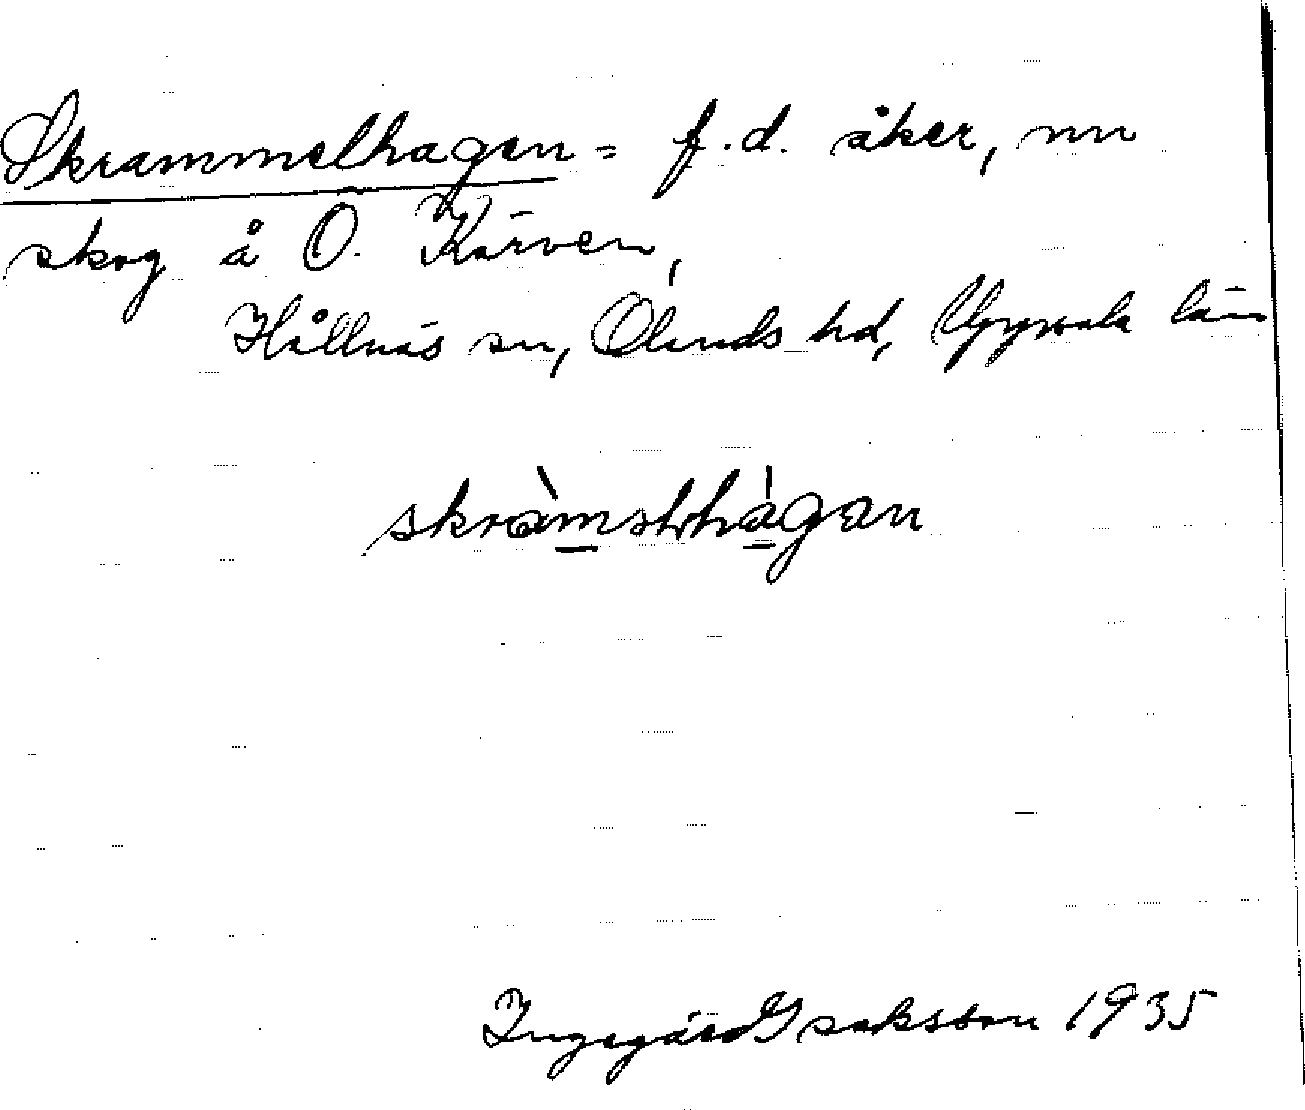 Skrammelhagen = f.d. åker, nu
skog å Ö. Kärven,
Hållnäs sn, Olands hd, Uppsala län
Ingegärd Isaksson 1935